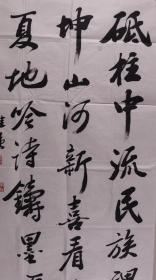 砥柱中流民族魂
坤山河新喜看
夏地吟诗铸墨